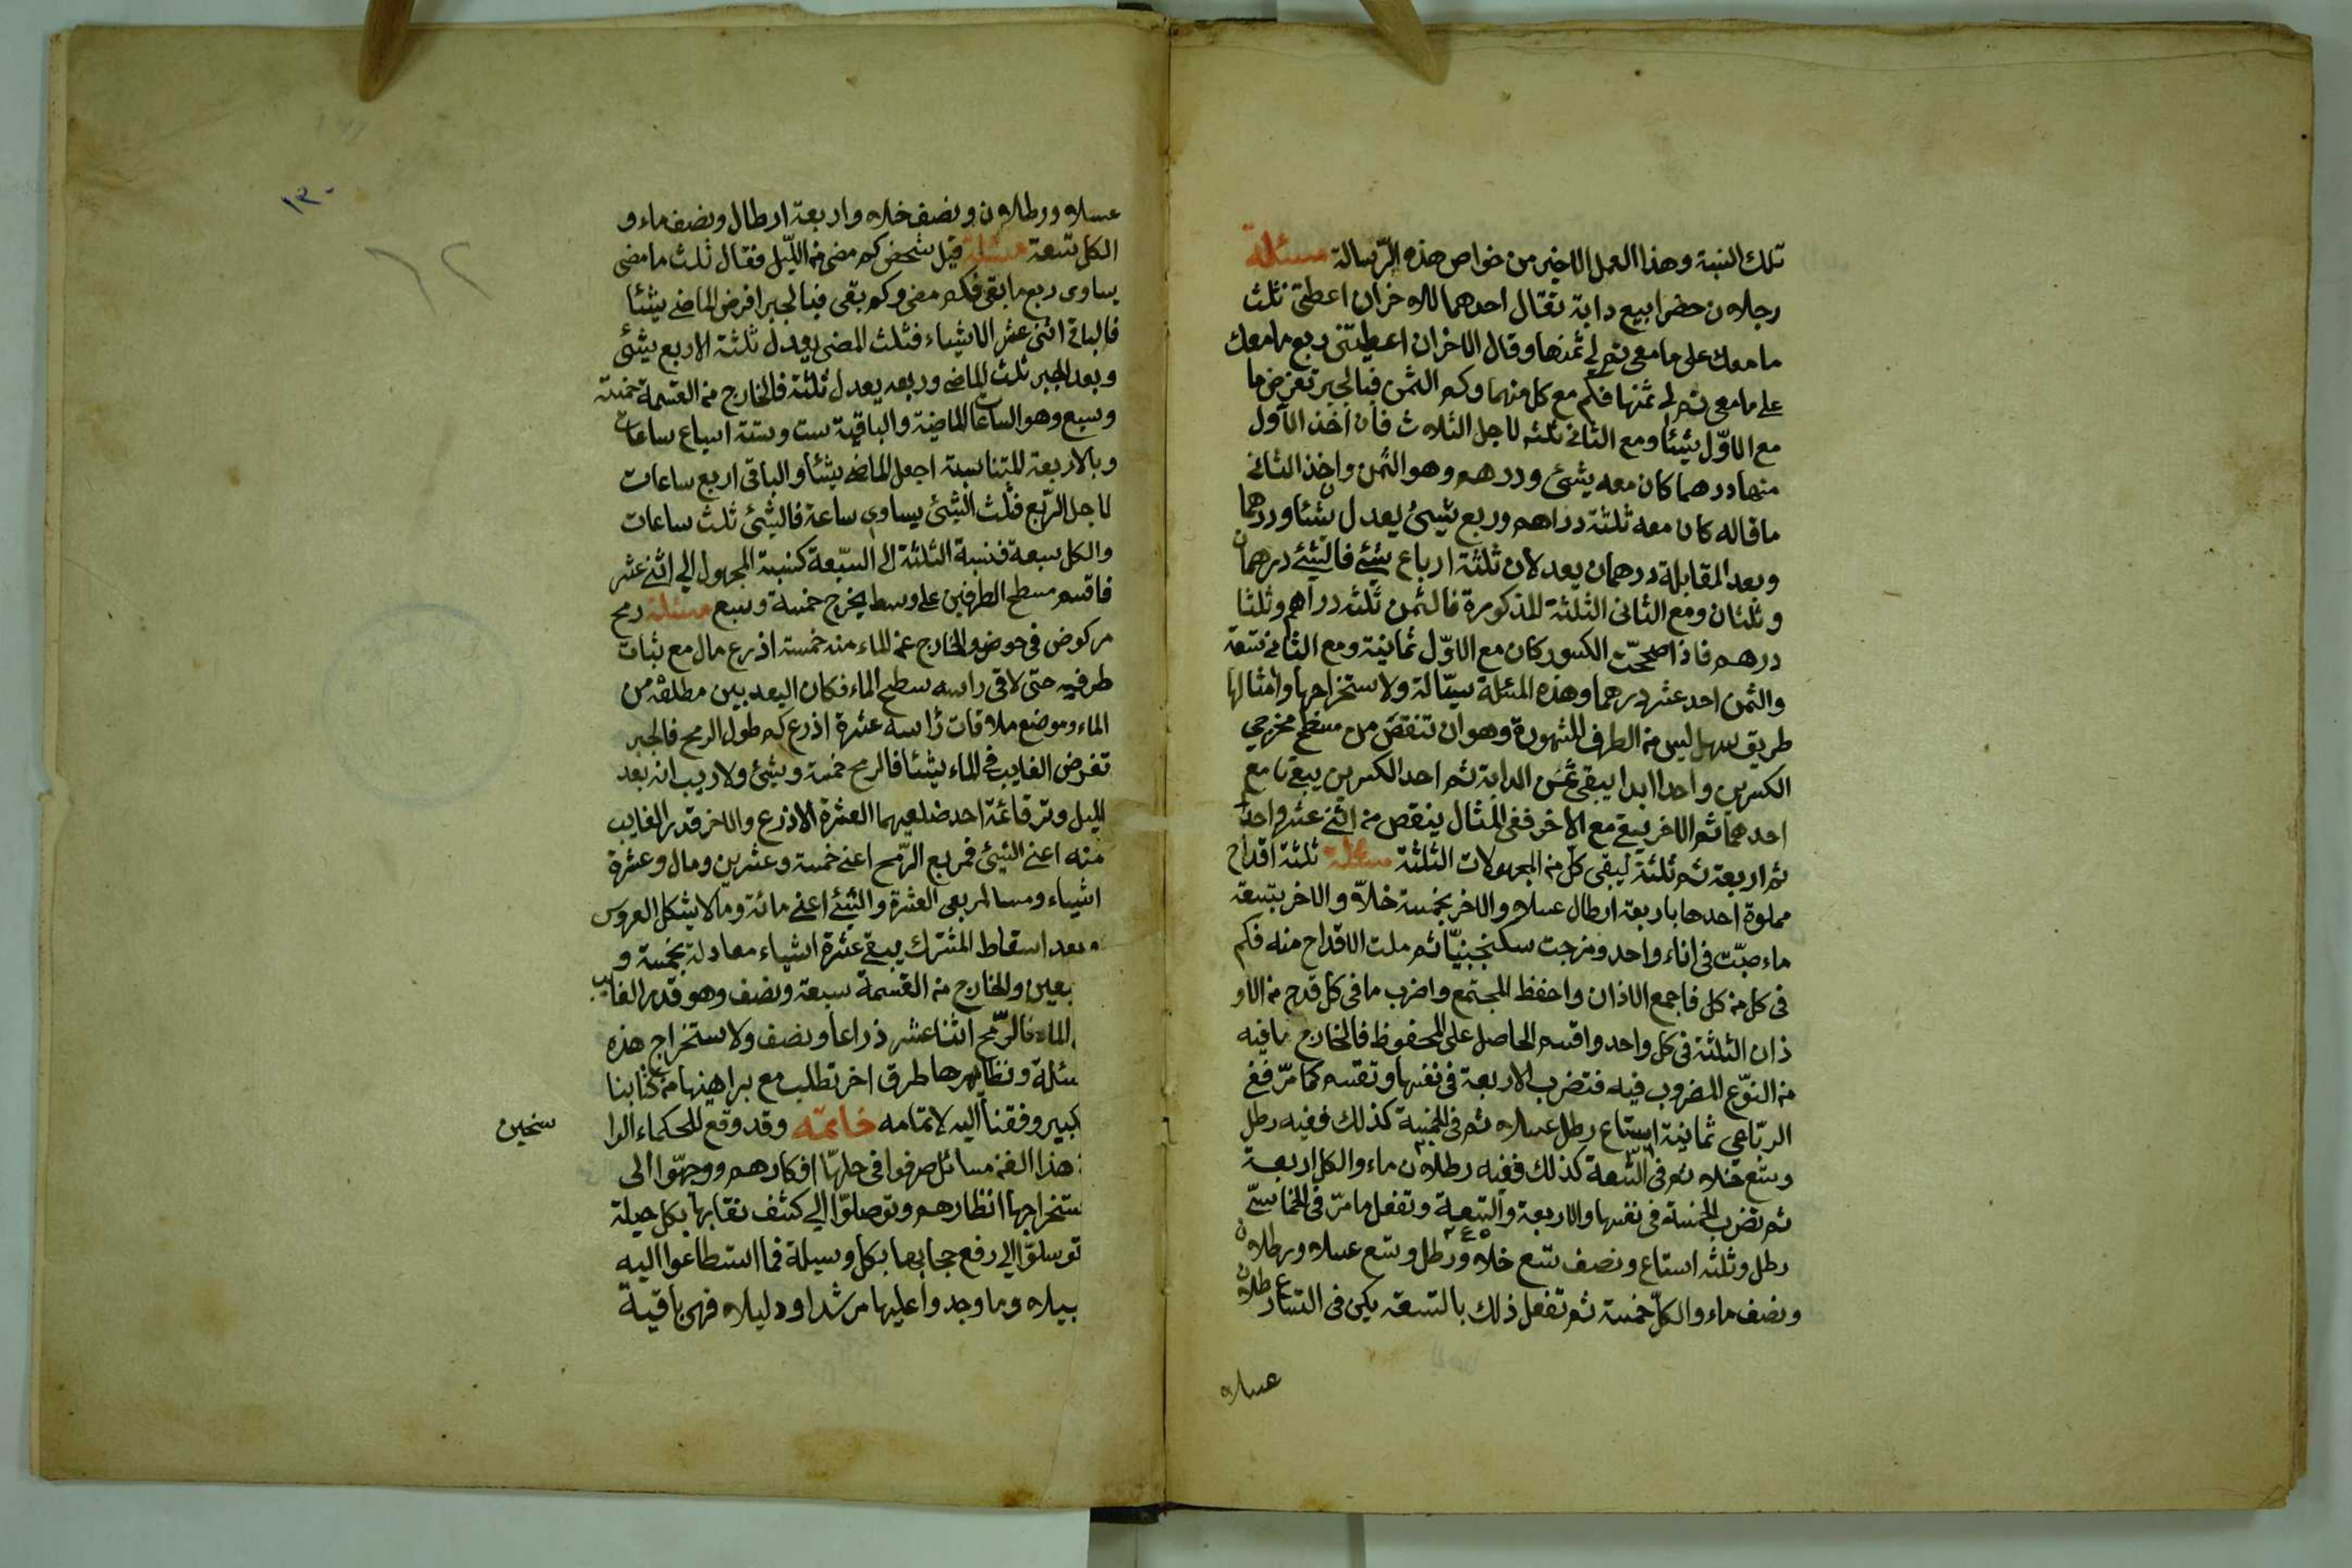 تلك النسبة وهذا العمل الاخير من خواص هذه الرّسالة مسئلة
رجلان حضرا بيع دابة فقال احدهما للاخران اعطيتنى ثلث
ما معك على ما معى تم لي ثمنها وقال الاخران اعطيتنى ربع ما معك
على ما معى تم لى ثمنها فكم مع كل منهما وكم الثمن فبالجبر تفرض ما
مع الاوّل شيئا ومع الثانى ثلثه لاجل الثلاث فان اخذ الاول
منها درهما كان معه شيئ ودرهم وهو الثمن واخذ الثانى
ما قاله كان معه ثلثة دراهم وربع شيئ يعدل شيئا ودرهما
وبعد المقابلة درهمان يعدلان ثلثة ارباع شيئ فالشيئ درهمان
وثلثان ومع الثانى الثلثة المذكورة فالثمن ثلثه دراهم وثلثا
درهم فاذا صححّت الكسور كان مع الاوّل ثمانية ومع الثانى تسعة
والثمن احد عشر درهما وهذه المسئلة سيّالة ولاستخراجها وامثالها
طريق سهل ليس من الطرف المشهورة وهو ان تنقص من مسطح مخرجي
الكسرين واحدا ابدا يبقى ثمن الدابة ثم احد الكسرين يبقى ما مع
احدهما ثم الاخر يبقى مع الاخر ففى المثال ينقص من اثنى عشر واحدا
ثم اربعة ثم ثلثة ليبقى كلّ من المجهولات الثلثة مسئلة ثلثة اقداح
مملوة احدها باربعة ارطال عسلا والاخر بخمسة خلاّ والاخر بتسعة
ماء صبّت فى اناء واحد ومزجت سكنجبنيّا ثم ملت الاقداح منه فكم
فى كل من كل فاجمع الاذان واحفظ المجتمع واضرب ما فى كل قدح من الاو
ذان الثلثة فى كل واحد واقسم الحاصل على المحفوظ فالخارج ما فيه
من النوّع المضروب فيه فتضرب الاربعة فى نفسها وتقسم كما مرّ ففى
الربّاعي ثمانية اتساع رطل عسلا ثم فى الخمسة كذلك ففيه رطل
وتسع خلا ثم فى التسعة كذلك ففيه رطلان ماء والكل اربعة
ثم تضرب الخمسة فى نفسها والاربعة والتسعة وتفعل ما مرّ فى الخماسىّ
رطل وثلثه اتساع ونصف تسع خلا ورطل وتسع عسلا ورطلان
ونصف ماء والكلّ خمسة ثم تفعل ذلك بالتسعة يكن فى التساع رطلان
عسلا
١٣٠
عسلا ورطلان ونصف خلا واربعة ارطال ونصف ماء و
الكل تسعة مسئلة قيل لشخص كم مضى من اللّيل فقال ثلث ما مضى
يساوى ربع ما بقى فكم مضى وكم بقى فبالجبر افرض الماضى شيئا
فالباقى اثنى عشر الا شياء فثلث المضى يعدل ثلثة الا ربع شيئ
وبعد الجبر ثلث الماضى وربعه يعدل ثلثة فالخارج من القسمة خمسة
وسبع وهو الساعات الماضية والباقية ست وستة اسباع ساعات
وبالاربعة المتناسبة اجعل الماضى شيئا والباقى اربع ساعات
لاجل الرّبع فثلث الشيئ يساوى ساعة فالشيئ ثلث ساعات
والكل سبعة فنسبة الثلثة الى السّبعة كنسبة المجهول الى اثنى عشر
فاقسم مسطح الطرفين على وسط يخرج خمسة وسبع مسئلة رمح
مركوض فى حوض والخارج عن الماء منه خمسة اذرع مال مع ثبات
طرفيه حتى لاقى راسه سطح الماء فكان البعد بين مطلقه من
الماء وموضع ملاقات راسه عشرة اذرع كم طول الرمح فالجبر
تفرض الغايب فى الماء شيئا فالرمح خمسة وشيئ ولاريب انه بعد
الميل وتر قائمة احد ضلعيها العشرة الاذرع والاخر قدر الغايب
منه اعنى الشيئ فمربع الرّمح اعنى خمسة وعشرين ومال وعشرة
اشياء ومسا لمربعى العشرة والشيئ اعنى مائة ومالا بشكل العروس
وبعد اسقاط المشترك يبقى عشرة اشياء معادلة بخمسة و
بعين والخارج من القسمة سبعة ونصف وهو قدر الغايب
الماء فالرّمح اثنا عشر ذراعا ونصف ولاستخراج هذه
سئلة ونظايرها طرق اخر تطلب مع براهينها من كتابنا
كبير وفقنا اليه لاتمامه خاتمة وقد وقع للحكماء الرا
سخين
هذا الفن مسائل صرفوا فى حلهّا افكارهم ووجهّوا الى
ستخراجها انظارهم وتوصلوّا الي كشف نقابها بكل حيلة
توسلوّا الي رفع حجابها بكل وسيلة فما استطاعوا اليه
بيلا وما وجدوا عليها مرشدا ودليلا فهى باقية